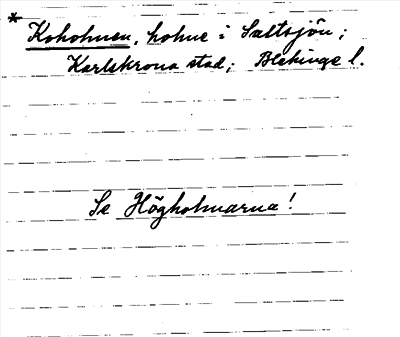 * Koholmen, holme i Saltsjön;
Karlskrona stad; Blekinge l.
Se Högholmarna!